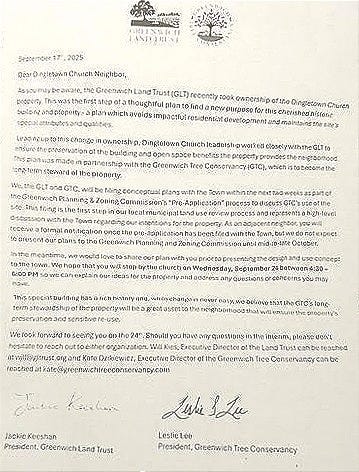 GREENWICH
LAND TRUST
September 17, 2025
Dear Dingletown Church Neighbor,
As you may be aware, the Greenwich Land Trust (GLT) recently took ownership of the Dingletown Church
property. This was the first step of a thoughtful plan to find a new purpose for this cherished historic
building and property - a plan which avoids impactful residential development and maintains the site's
special attributes and qualities.
Leading up to this change in ownership, Dingletown Church leadership worked closely with the GLT to
ensure the preservation of the building and open space benefits the property provides the neighborhood.
This plan was made in partnership with the Greenwich Tree Conservancy (GTC), which is to become the
long-term steward of the property.
We, the GLT and GTC, will be filing conceptual plans with the Town within the next two weeks as part of
the Greenwich Planning & Zoning Commission's "Pre-Application" process to discuss GTC's use of the
site. This filing is the first step in our local municipal land use review process and represents a high-level
discussion with the Town regarding our intentions for the property. As an adjacent neighbor, you will
receive a formal notification once the pre-application has been filed with the Town, but we do not expect
to present our plans to the Greenwich Planning and Zoning Commission until mid-to-late October.
In the meantime, we would love to share our plan with you prior to presenting the design and use concept
to the Town. We hope that you will stop by the church on Wednesday, September 24 between 4:30 -
6:00 PM so we can explain our ideas for the property and address any questions or concerns you may
have.
This special building has a rich history and, while change is never easy, we believe that the GTC's long-
term stewardship of the property will be a great asset to the neighborhood that will ensure the property's
preservation and sensitive re-use.
We look forward to seeing you on the 24th. Should you have any questions in the interim, please don't
hesitate to reach out to either organization. Will Kies, Executive Director of the Land Trust can be reached
at and Kate Dzikiewicz, Executive Director of the Greenwich Tree Conservancy can
be reached at kate@greenwichtreeconservancy.com
Jackie Keeshan Leslie L Lee
Jackie Keeshan Leslie Lee
President, Greenwich Land Trust President, Greenwich Tree Conservancy